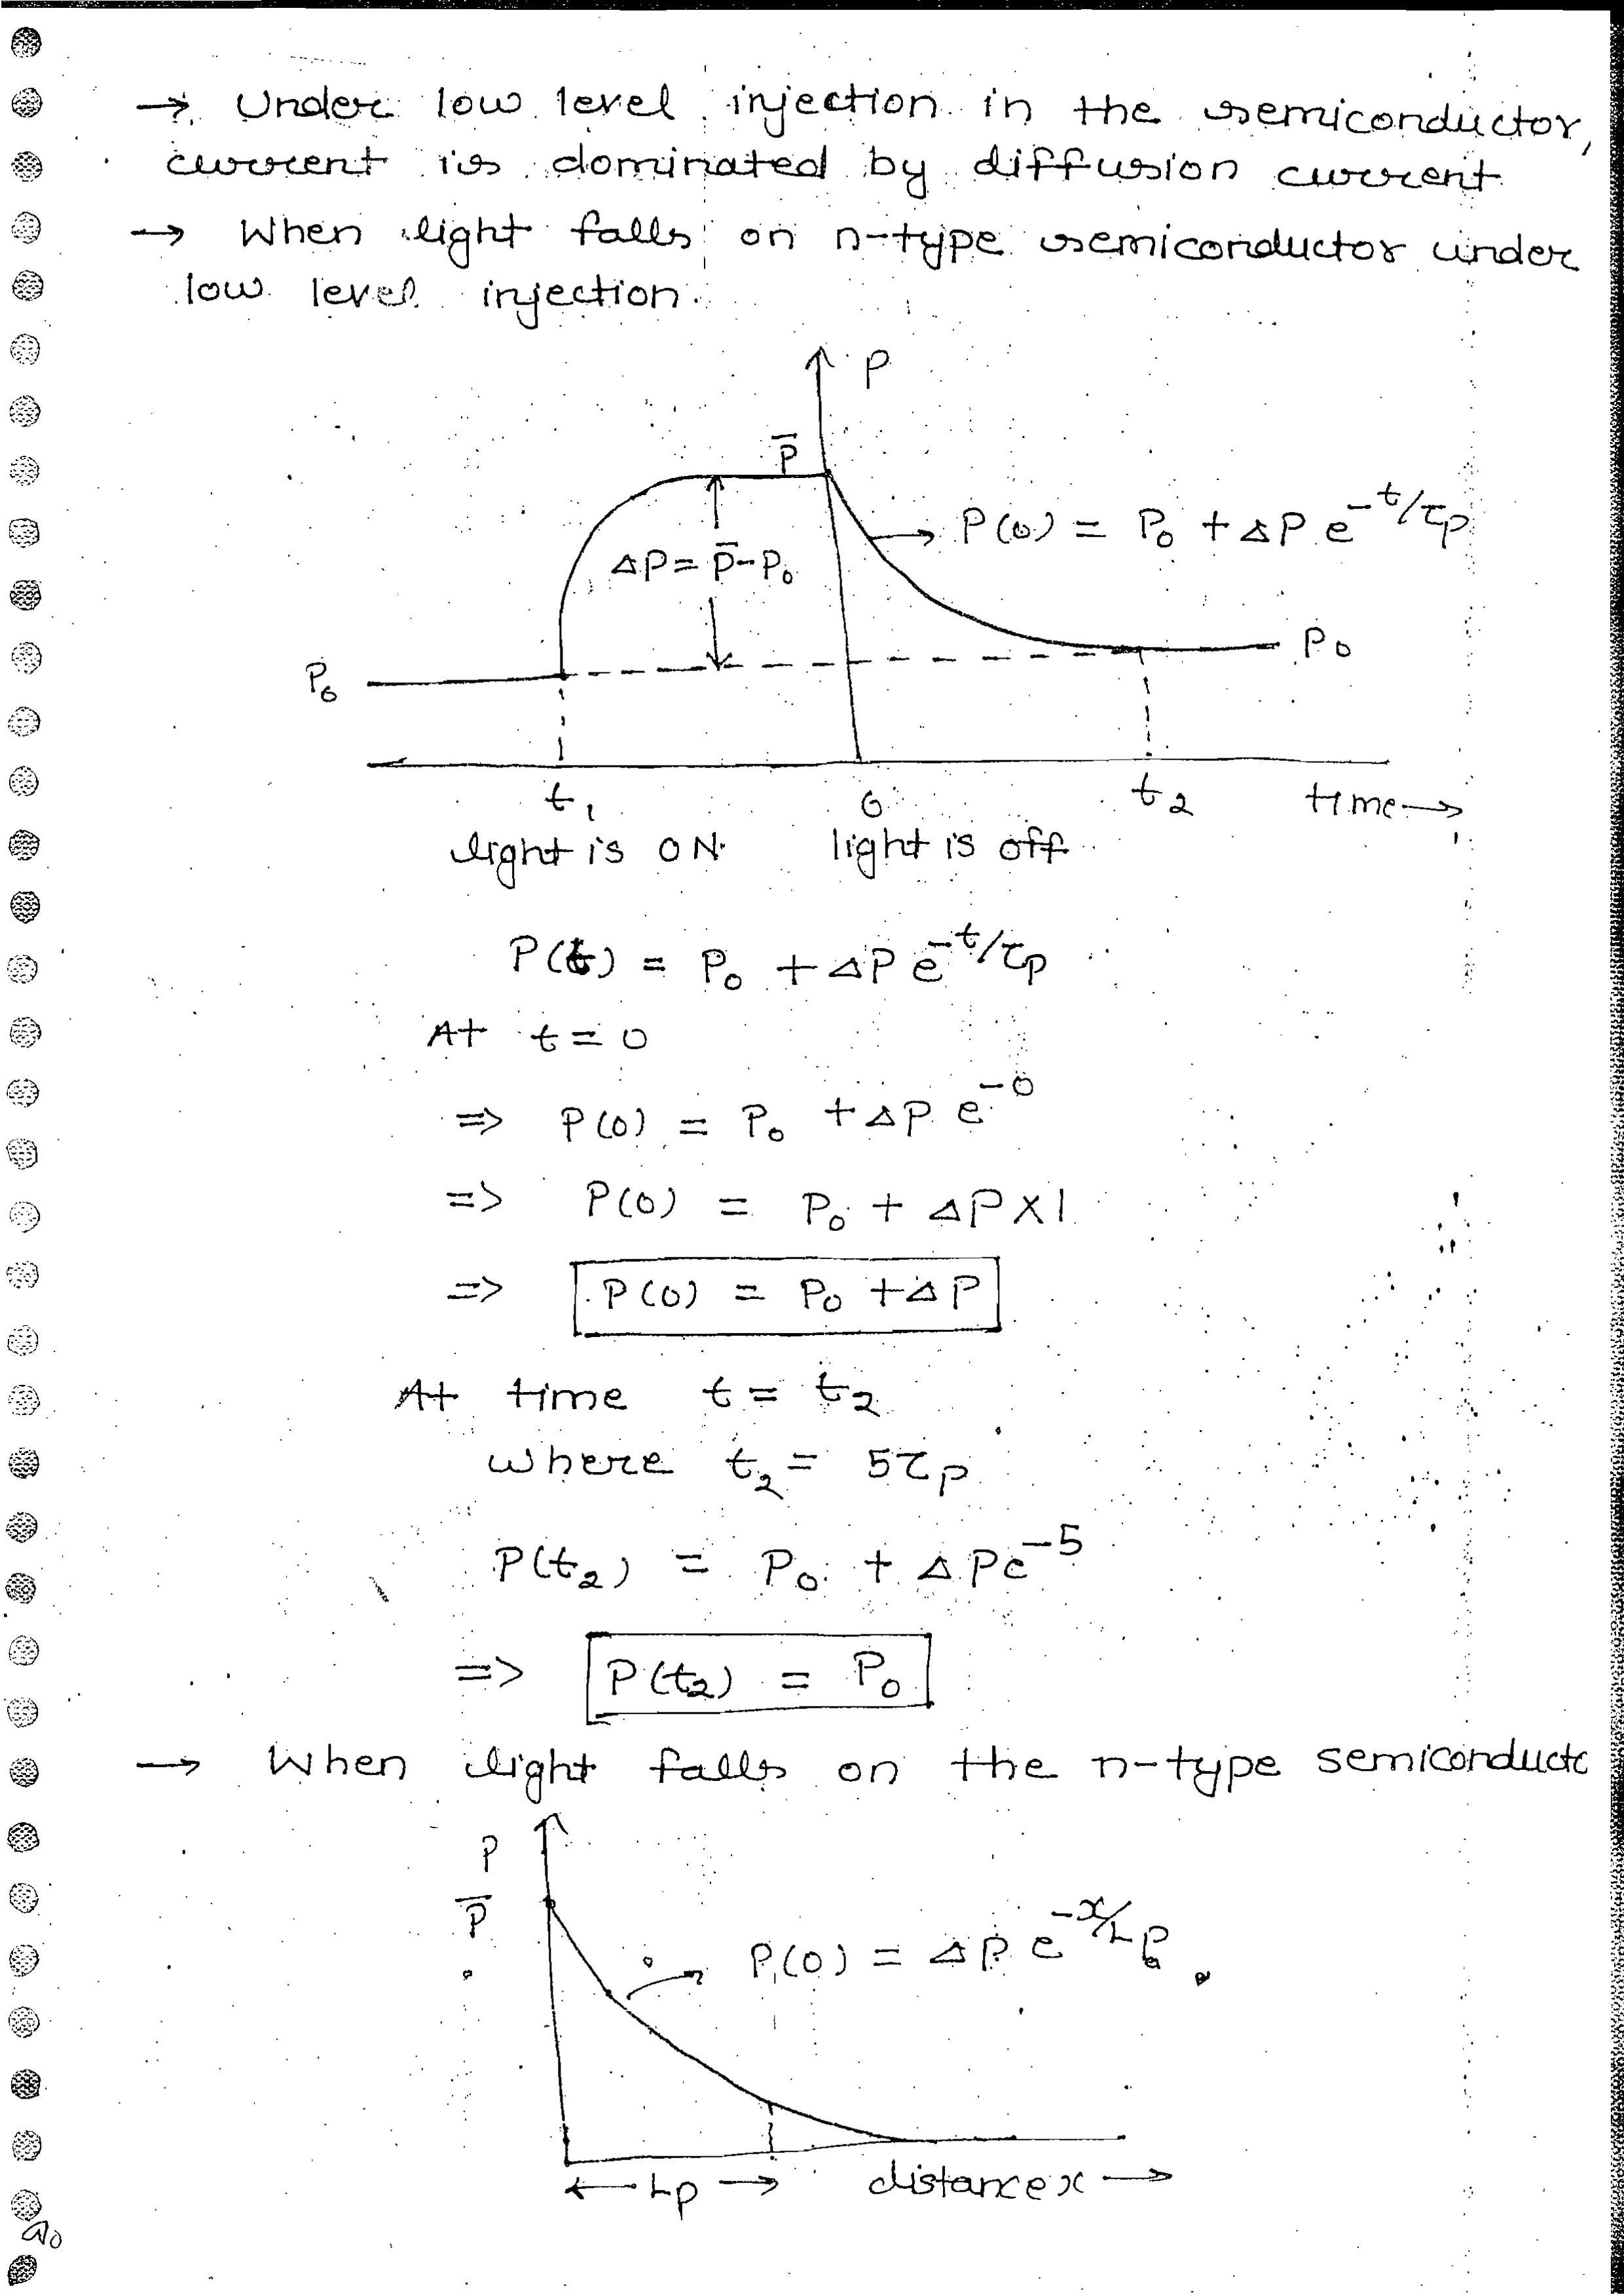 → Under low level injection in the semiconductor,
current is dominated by diffusion current
→ When light falls on n-type semiconductor under
low level injection.
P
P̅
P(0) = P₀ + ΔP e^(-t/τp)
ΔP = P̅ - P₀
P₀
P₀
t₁ 0 t₂ time →
light is ON light is off
P(t) = P₀ + ΔP e^(-t/τp)
At t = 0
=> P(0) = P₀ + ΔP e^(-0)
=> P(0) = P₀ + ΔP X 1
=> P(0) = P₀ + ΔP
At time t = t₂
where t₂ = 5τp
P(t₂) = P₀ + ΔP e^(-5)
=> P(t₂) = P₀
→ When light falls on the n-type semiconducto
P
P̅
P(0) = ΔP e^(-x/Lp)
← Lp → distance x →